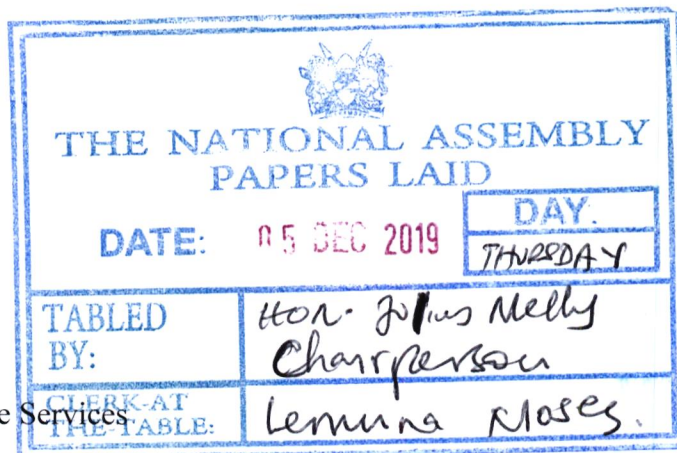 THE NATIONAL ASSEMBLY
PAPERS LAID
DATE: 05 DEC 2019
DAY.
THURSDAY
TABLED BY:
Hon. Julius Melly
Chairperson
e Services
CLERK-AT THE-TABLE:
Lemuna Moses.